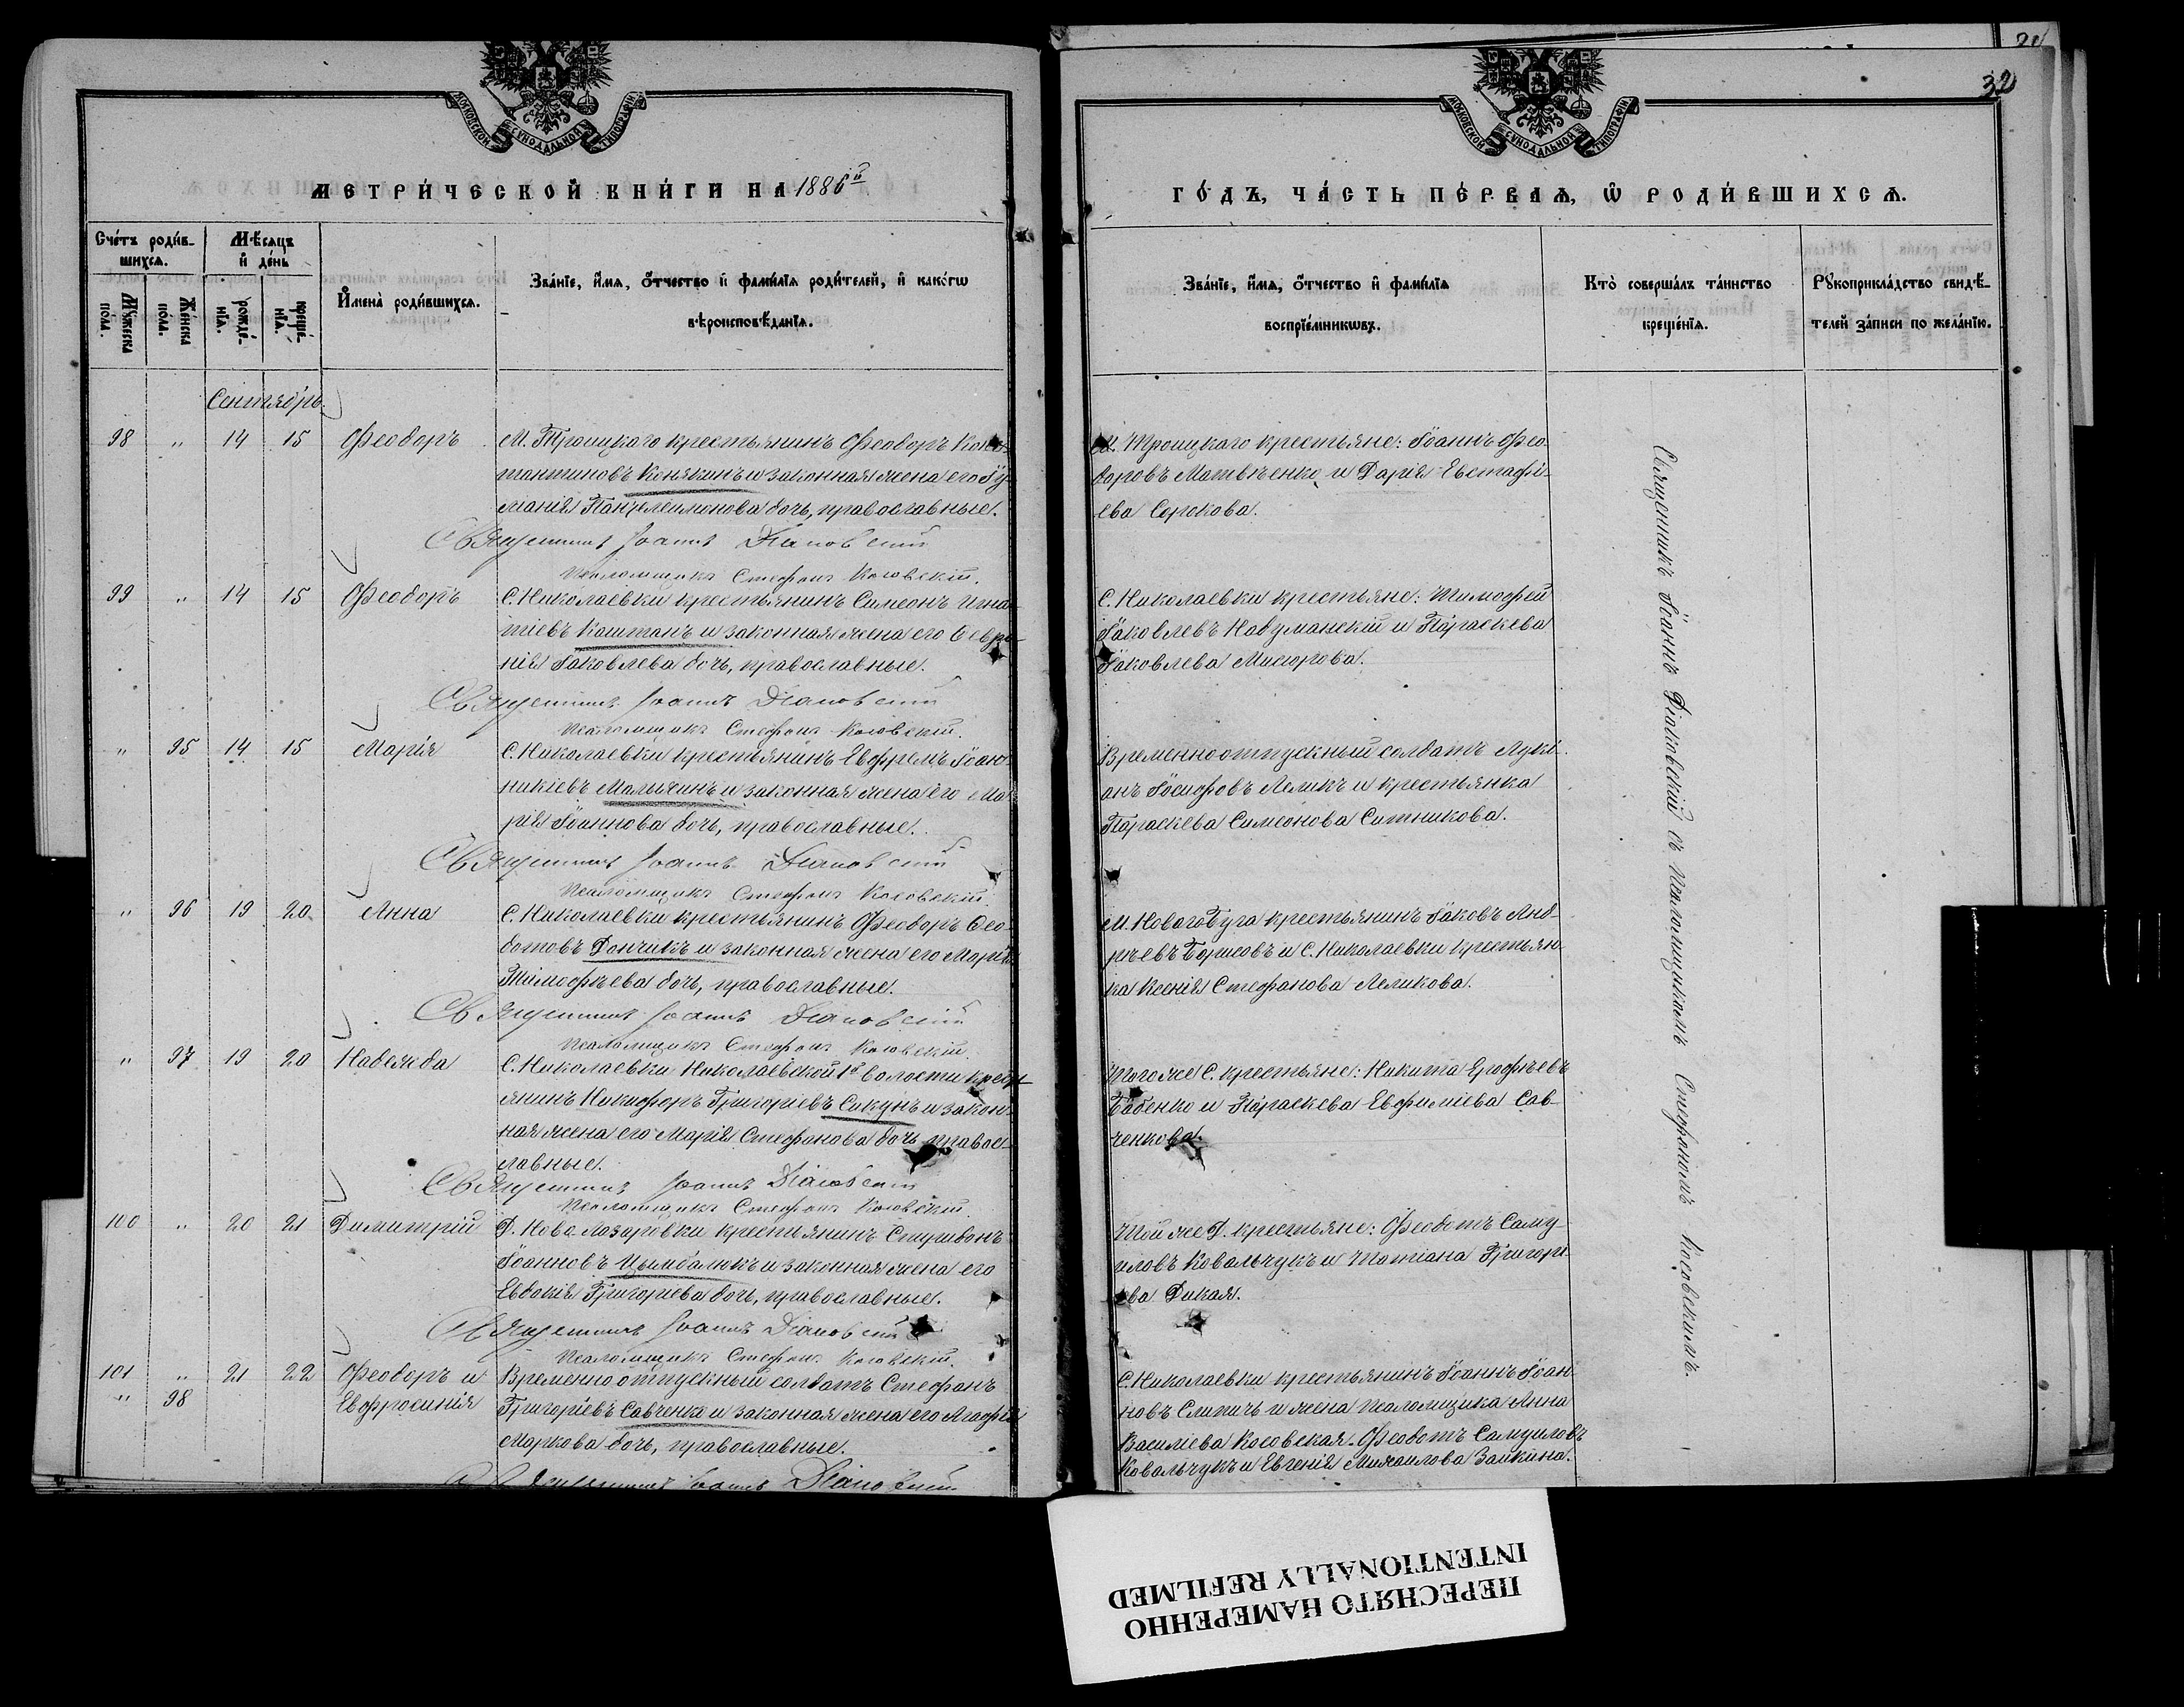 МОСКОВСКОЙ СѴНОДАЛЬНОЙ ТИПОГРАФІИ
МЕТРИ́ЧЕСКОЙ КНИ́ГИ НА 1886й
Сче́тъ роди́в-
шихсѧ.
Мѣ́сѧцъ
и҆ де́нь
Мꙋ́жеска
по́ла.
Же́нска
по́ла.
рожде́-
нїѧ.
креще́-
нїѧ.
И҆мена̀ роди́вшихсѧ.
Зва́нїе, и҆́мѧ, ѻ҆́тчество и҆ фами́лїѧ роди́телей, и҆ како́гѡ
вѣроисповѣ́данїѧ.
Сентябрь.
98 " 14 15 Ѳеодоръ М. Троицкаго крестьянинъ Ѳеодоръ Конс-
тантиновъ Конякинъ и законная жена его Іу-
ліанія Пантелеимонова дочь, православные.
Священникъ Іоаннъ Діаковскій
Псаломщикъ Стефанъ Косовскій.
99 " 14 15 Ѳеодоръ С. Николаевки крестьянинъ Симеонъ Игна-
тіевъ Каштанъ и законная жена его Февро-
нія Іаковлева дочь, православные.
Священникъ Іоаннъ Діаковскій
Псаломщикъ Стефанъ Косовскій.
" 95 14 15 Марія С. Николаевки крестьянинъ Ефремъ Іоан-
никіевъ Малыжинъ и законная жена его Ма-
рія Іоаннова дочь, православные.
Священникъ Іоаннъ Діаковскій
Псаломщикъ Стефанъ Косовскій.
" 96 19 20 Анна С. Николаевки крестьянинъ Ѳеодоръ Ѳео-
дотовъ Дончикъ и законная жена его Марія
Тимофѣева дочь, православные.
Священникъ Іоаннъ Діаковскій
Псаломщикъ Стефанъ Косовскій.
" 97 19 20 Надежда С. Николаевки Николаевской 1й волости крест-
янинъ Никифоръ Григоріевъ Сикунъ и закон-
ная жена его Марія Стефанова дочь правос-
лавные.
Священникъ Іоаннъ Діаковскій
Псаломщикъ Стефанъ Косовскій.
100 " 20 21 Димитрій Д. Ново Лазаровки крестьянинъ Спиридонъ
Іоанновъ Цымбалюкъ и законная жена его
Евдокія Григоріева дочь, православные.
Священникъ Іоаннъ Діаковскій
Псаломщикъ Стефанъ Косовскій.
101 " 21 22 Ѳеодоръ и Временно отпускный солдатъ Стефанъ
" 98 Евфросинія Григоріевъ Савченко и законная жена его Агафія
Маркова дочь, православные.
Священникъ Іоаннъ Діаковскій
32
МОСКОВСКОЙ СѴНОДАЛЬНОЙ ТИПОГРАФІИ
ГО́ДЪ, ЧА́СТЬ ПЕ́РВАѦ, Ѡ҆ РОДИ́ВШИХСѦ.
Зва́нїе, и҆́мѧ, ѻ҆́тчество и҆ фами́лїѧ
воспрїе́мникѡвъ.
Кто̀ соверша́лъ та́инство
креще́нїѧ.
Рꙋкоприкла́дство свидѣ́-
телей за́писи по жела́нїю.
М. Троицкаго крестьяне: Іоаннъ Ѳео-
доровъ Матвѣенко и Дарія Евстафі-
ева Серкова.
С. Николаевки крестьяне: Тимофей
Іаковлевъ Наduманскій и Параскева
Іаковлева Мисюрова.
Временноотпускный солдатъ Лукі-
анъ Іосифовъ Леликъ и крестьянка
Параскева Симеонова Ситникова.
М. Новаго Буга крестьянинъ Іаковъ Анд-
рѣевъ Борисовъ и С. Николаевки крестьян-
ка Ксенія Стефанова Леликова.
Тогоже С. крестьяне: Никита Ерофѣевъ
Бабенко и Параскева Евфиміева Сав-
ченкова.
Той же Д. крестьяне: Ѳеодотъ Саму-
иловъ Ковальчукъ и Татіана Григорі-
ева Дикая.
С. Николаевки крестьянинъ Іоаннъ Іоан-
новъ Слипичъ и жена псаломщика Анна
Василіева Косовская. Ѳеодотъ Самуиловъ
Ковальчукъ и Евгенія Михаилова Зайкина.
Священникъ Іоаннъ Діаковскій съ псаломщикомъ Стефаномъ Косовскимъ.
ПЕРЕСНЯТО НАМЕРЕННО
INTENTIONALLY REFILMED